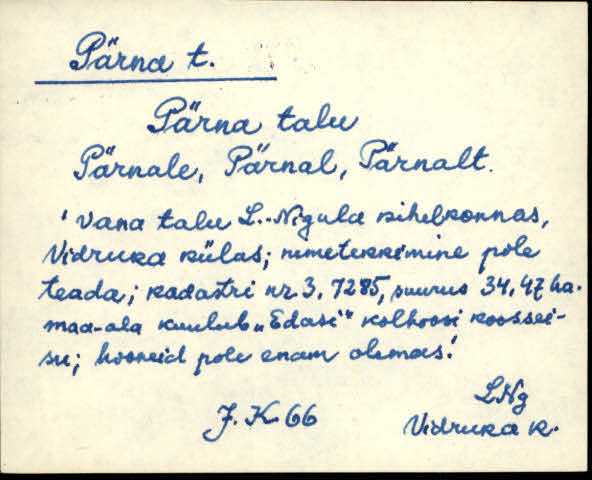 Pärna t.
Pärna talu
Pärnale, Pärnal, Pärnalt.
' vana talu L.-Nigula kihelkonnas,
Vidruka külas; nimetekkimine pole
teada; kadastri nr. 3. 7285, suurus 34,47 ha.
maa-ala kuulub „Edasi" kolhoosi koossei-
su; hooneid pole enam olemas.'
LNg
J. K. 66
Vidruka k.